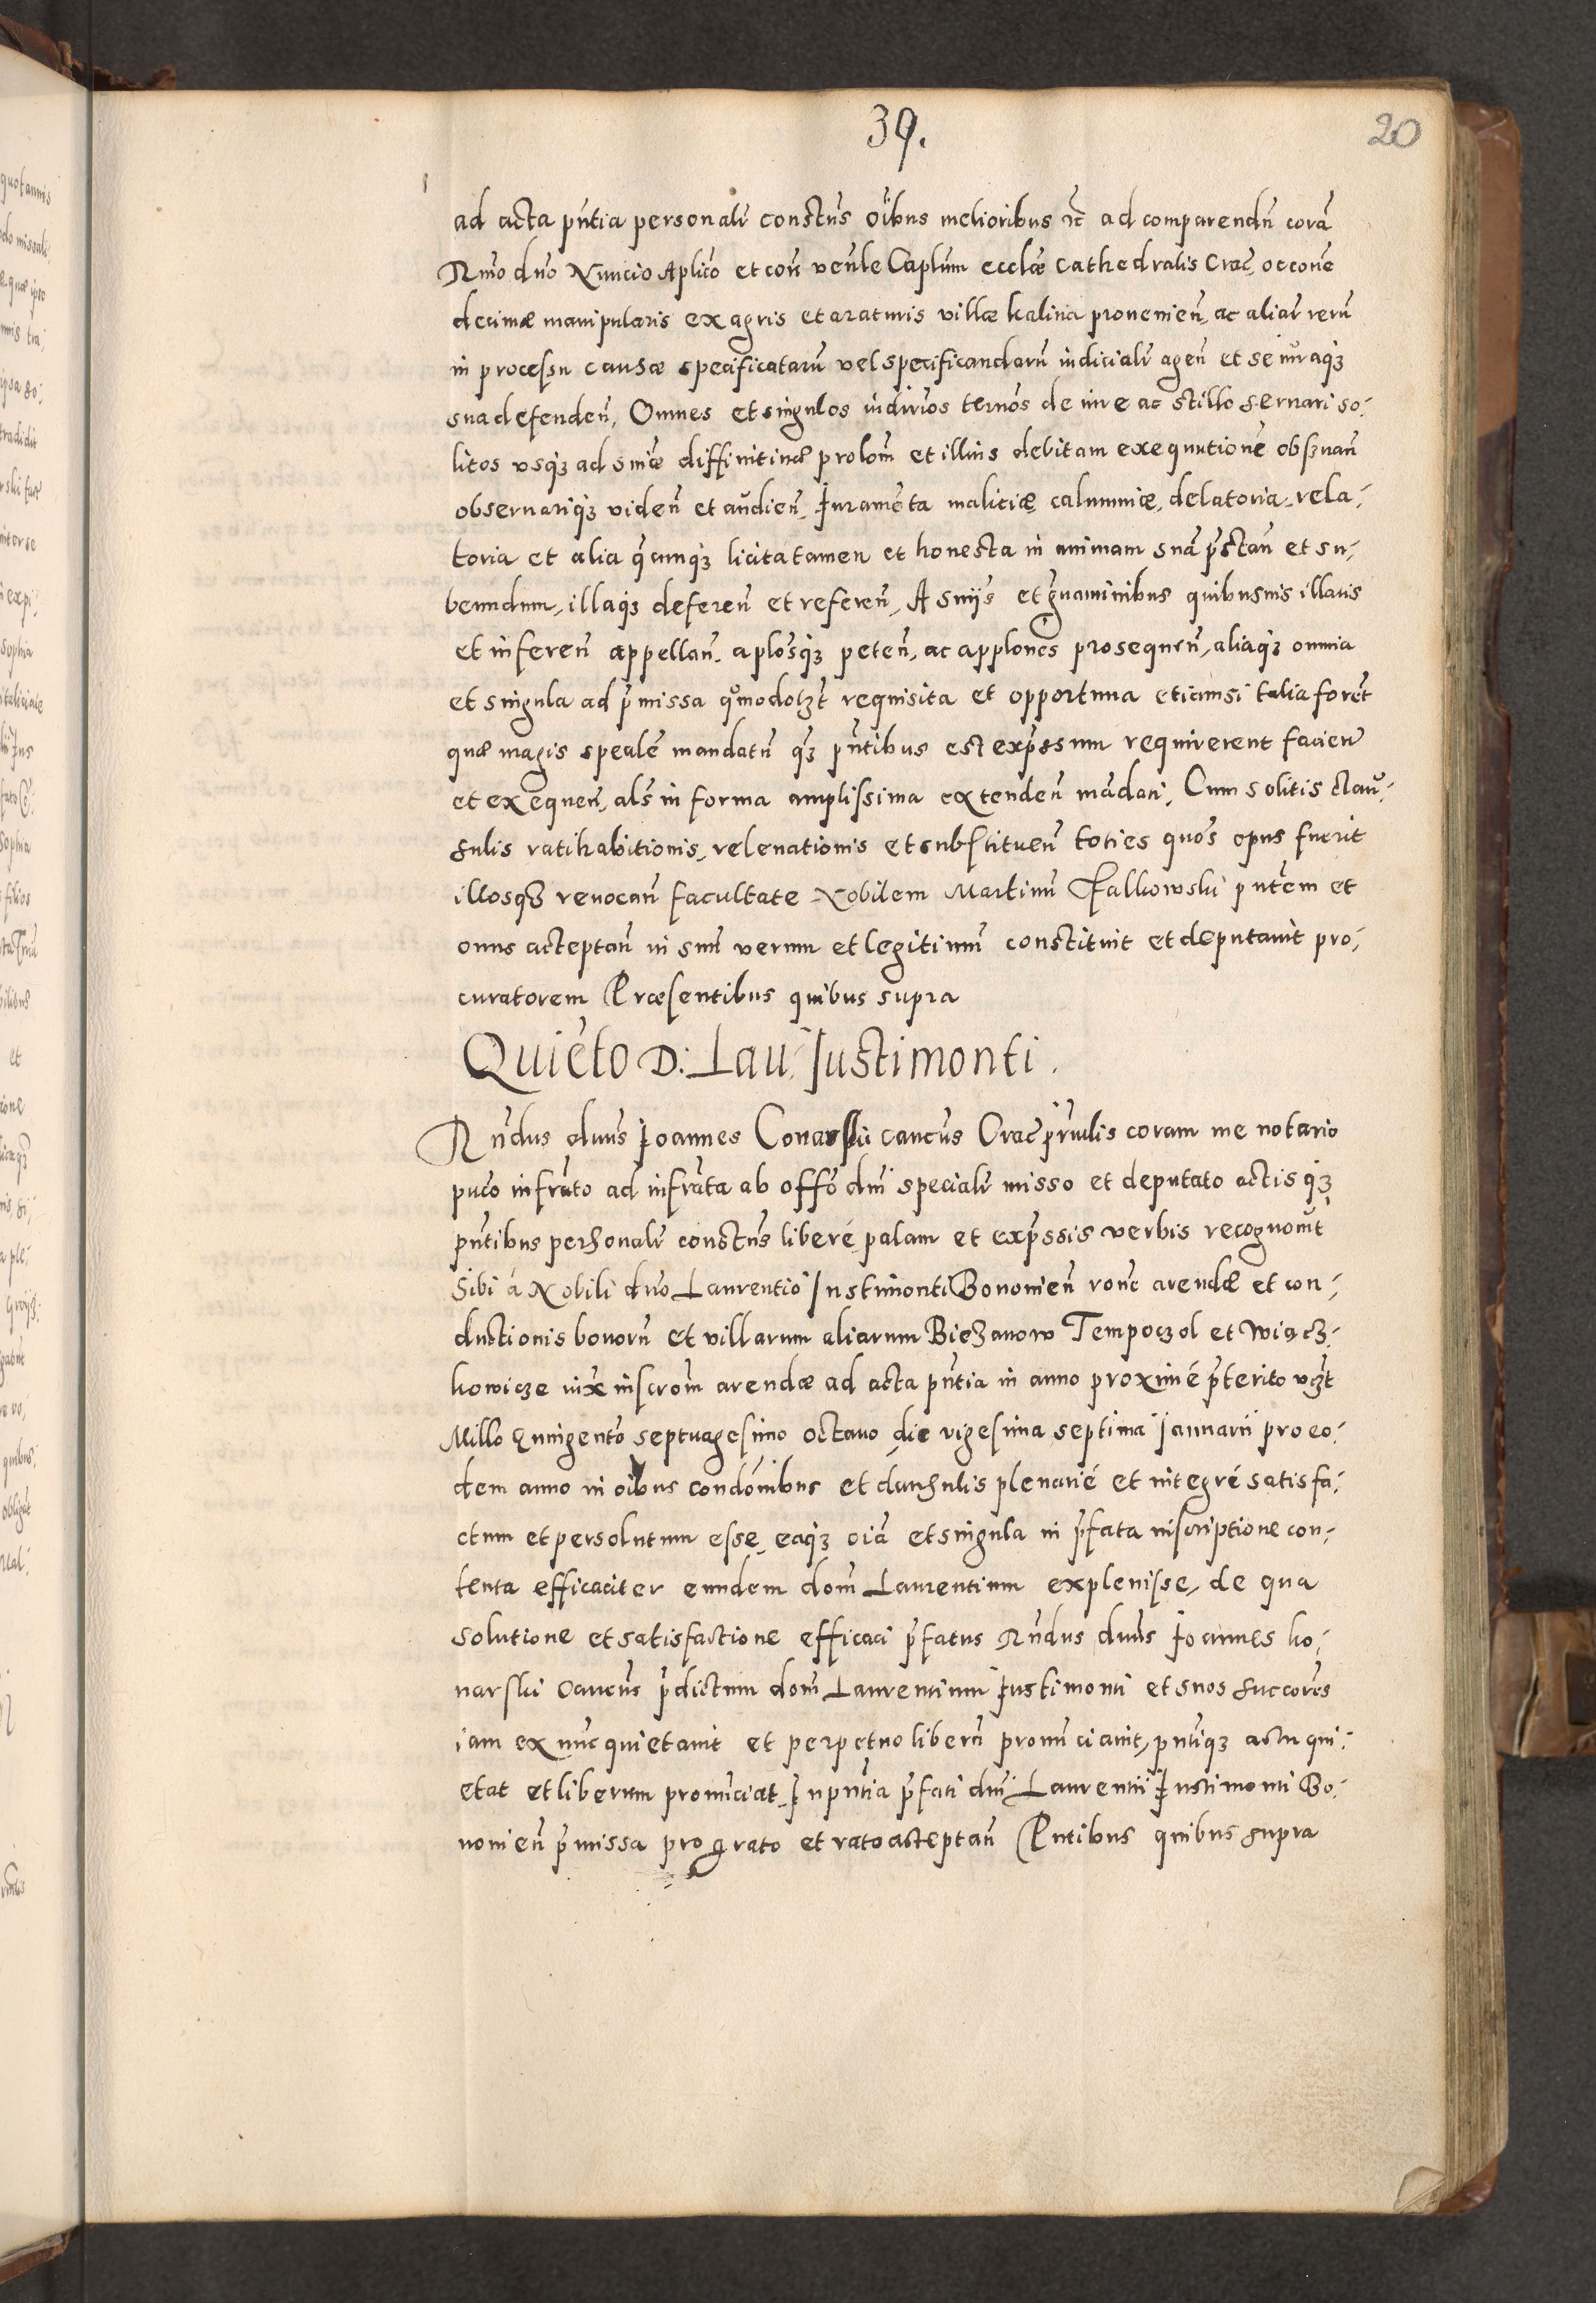 39.
20
ad acta pñtia personalr constcũs oĩbus melioribus rc̃ ad comparendũ corã
Rmo dno Nuncio Aplico et coñ veñle Caplum ecclæ Cathedralis Crac, occone
decimæ manipularis ex agris et araturis villæ kalina provenieñ, ac aliar rerũ
in processu causæ specificatarũ vel specificandarũ indicialr ageñ et se iuraq3
sua defendeñ, Omnes et singulos iudirios termos de iure ac stillo servari so:
litos usq3 ad sniæ diffinitinæ prolom et illius debitam exequutione observañ
observariq3 videñ et audieñ, Iuramẽta maliciæ, calumniæ, delatoria, rela:
toria et alia q̃cunq3 licita tamen et honesta in animam suã p̃stañ et su:
beundum, illaq3 defereñ et refereñ, A snijs et gravaminibus quibusvis illatis
et infereñ appellañ, aplosq3 peteñ, ac applones prosequeñ, aliaq3 omnia
et singula ad p̃missa quomodol3t requisita et opportuna etiamsi talia foret
quæ magis speale mandatũ q3 pñtibus est exp̃ssum requirerent facieñ
et exequeñ, als in forma amplissima extendeñ mãdati, Cum solitis clau:
sulis ratihabitionis, relevationis et substitueñ toties quos opus fuerit
illosq3 revocañ facultate Nobilem Martinũ Falkowski pñtem et
onus acceptañ in suũ verum et legitimũ constituit et deputavit pro:
curatorem Præsentibus quibus supra
Quieto D: Lau. Justimonti.
Rndus dnus Joannes Conarski cancus Crac prmlis coram me notario
puco infrato ad infrata ab offo dni specialr misso et deputato actisq3
pñtibus personalr constcus libere palam et exp̃ssis verbis recognovit
Sibi á Nobili dno Laurentio Justimonti Bononieñ rone arendæ et con:
ductionis bonorũ et villarum aliarum Bie3anow Tempoc3ol et Wiąc3:
kowic3e iux̃ inscrom arendæ ad acta pñtia in anno proximé p̃terito v3t
Millo Quingento septuagesimo octavo die vigesima septima Januarii pro eo:
dem anno in oĩbus condonibus et clausulis plenarié et integré satisfa:
ctum et persolutum esse, eaq3 oiã et singula in p̃fata inscriptione con:
tenta efficaciter eundem dom Laurentium explenisse, de qua
solutione et satisfactione efficaci p̃fatus Rndus dnus Joannes ko:
narski Cancus p̃dictum dom Laurentium Justimonti et suos succores
iam ex nũc quietavit et perpetuo liberũ pronũciavit, pñtiq3 actu qui:
etat et liberum pronũciat, In pñtia p̃fati dni Laurentii Justimonti Bo:
nonieñ p̃missa pro grato et rato acceptañ Pntibus quibus supra